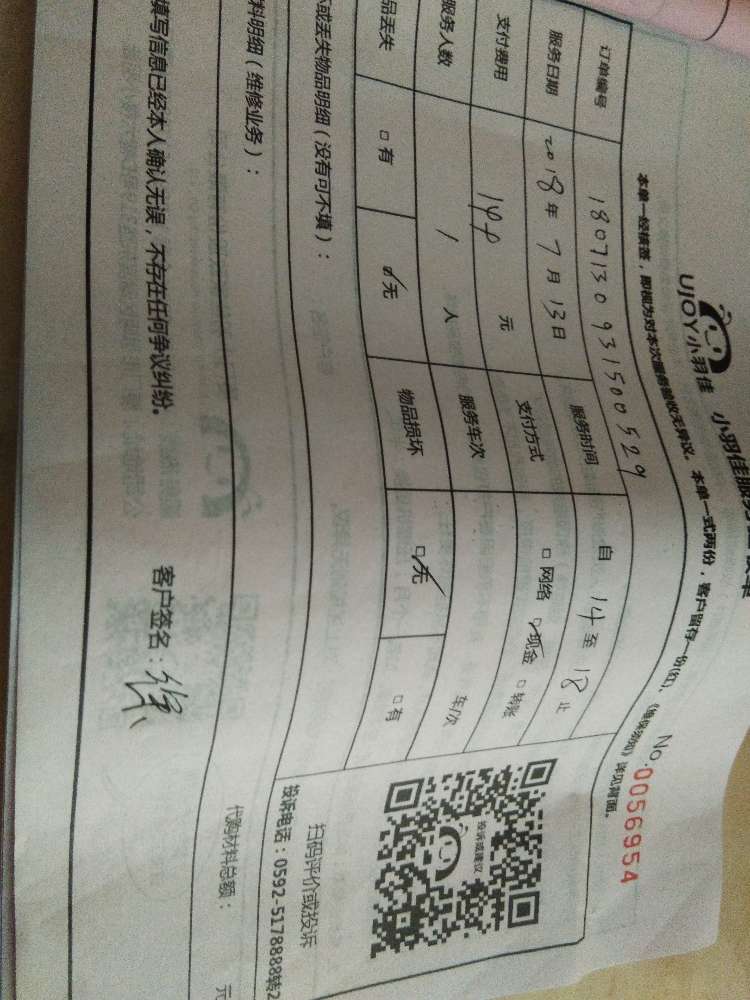 UJOY小羽佳 小羽佳服务
No.0056954
本单一经核签,即视为对本次服务验收无异议。本单一式两份,客户留存一份(红),《维保须知》详见背面。
订单编号 1807130931500529
服务日期 2018年7月13日 服务时间 自14至18止
支付费用 元 支付方式 □网络 ☑现金 □转账
服务人数 1人 服务车次 车/次
品丢失 □有 ☑无 物品损坏 ☑无 □有
或丢失物品明细(没有可不填):
料明细(维修业务):
代购材料总额: 元
投诉或建议
扫码评价或投诉
投诉电话:0592-5178888转2
填写信息已经本人确认无误,不存在任何争议纠纷。 客户签名: